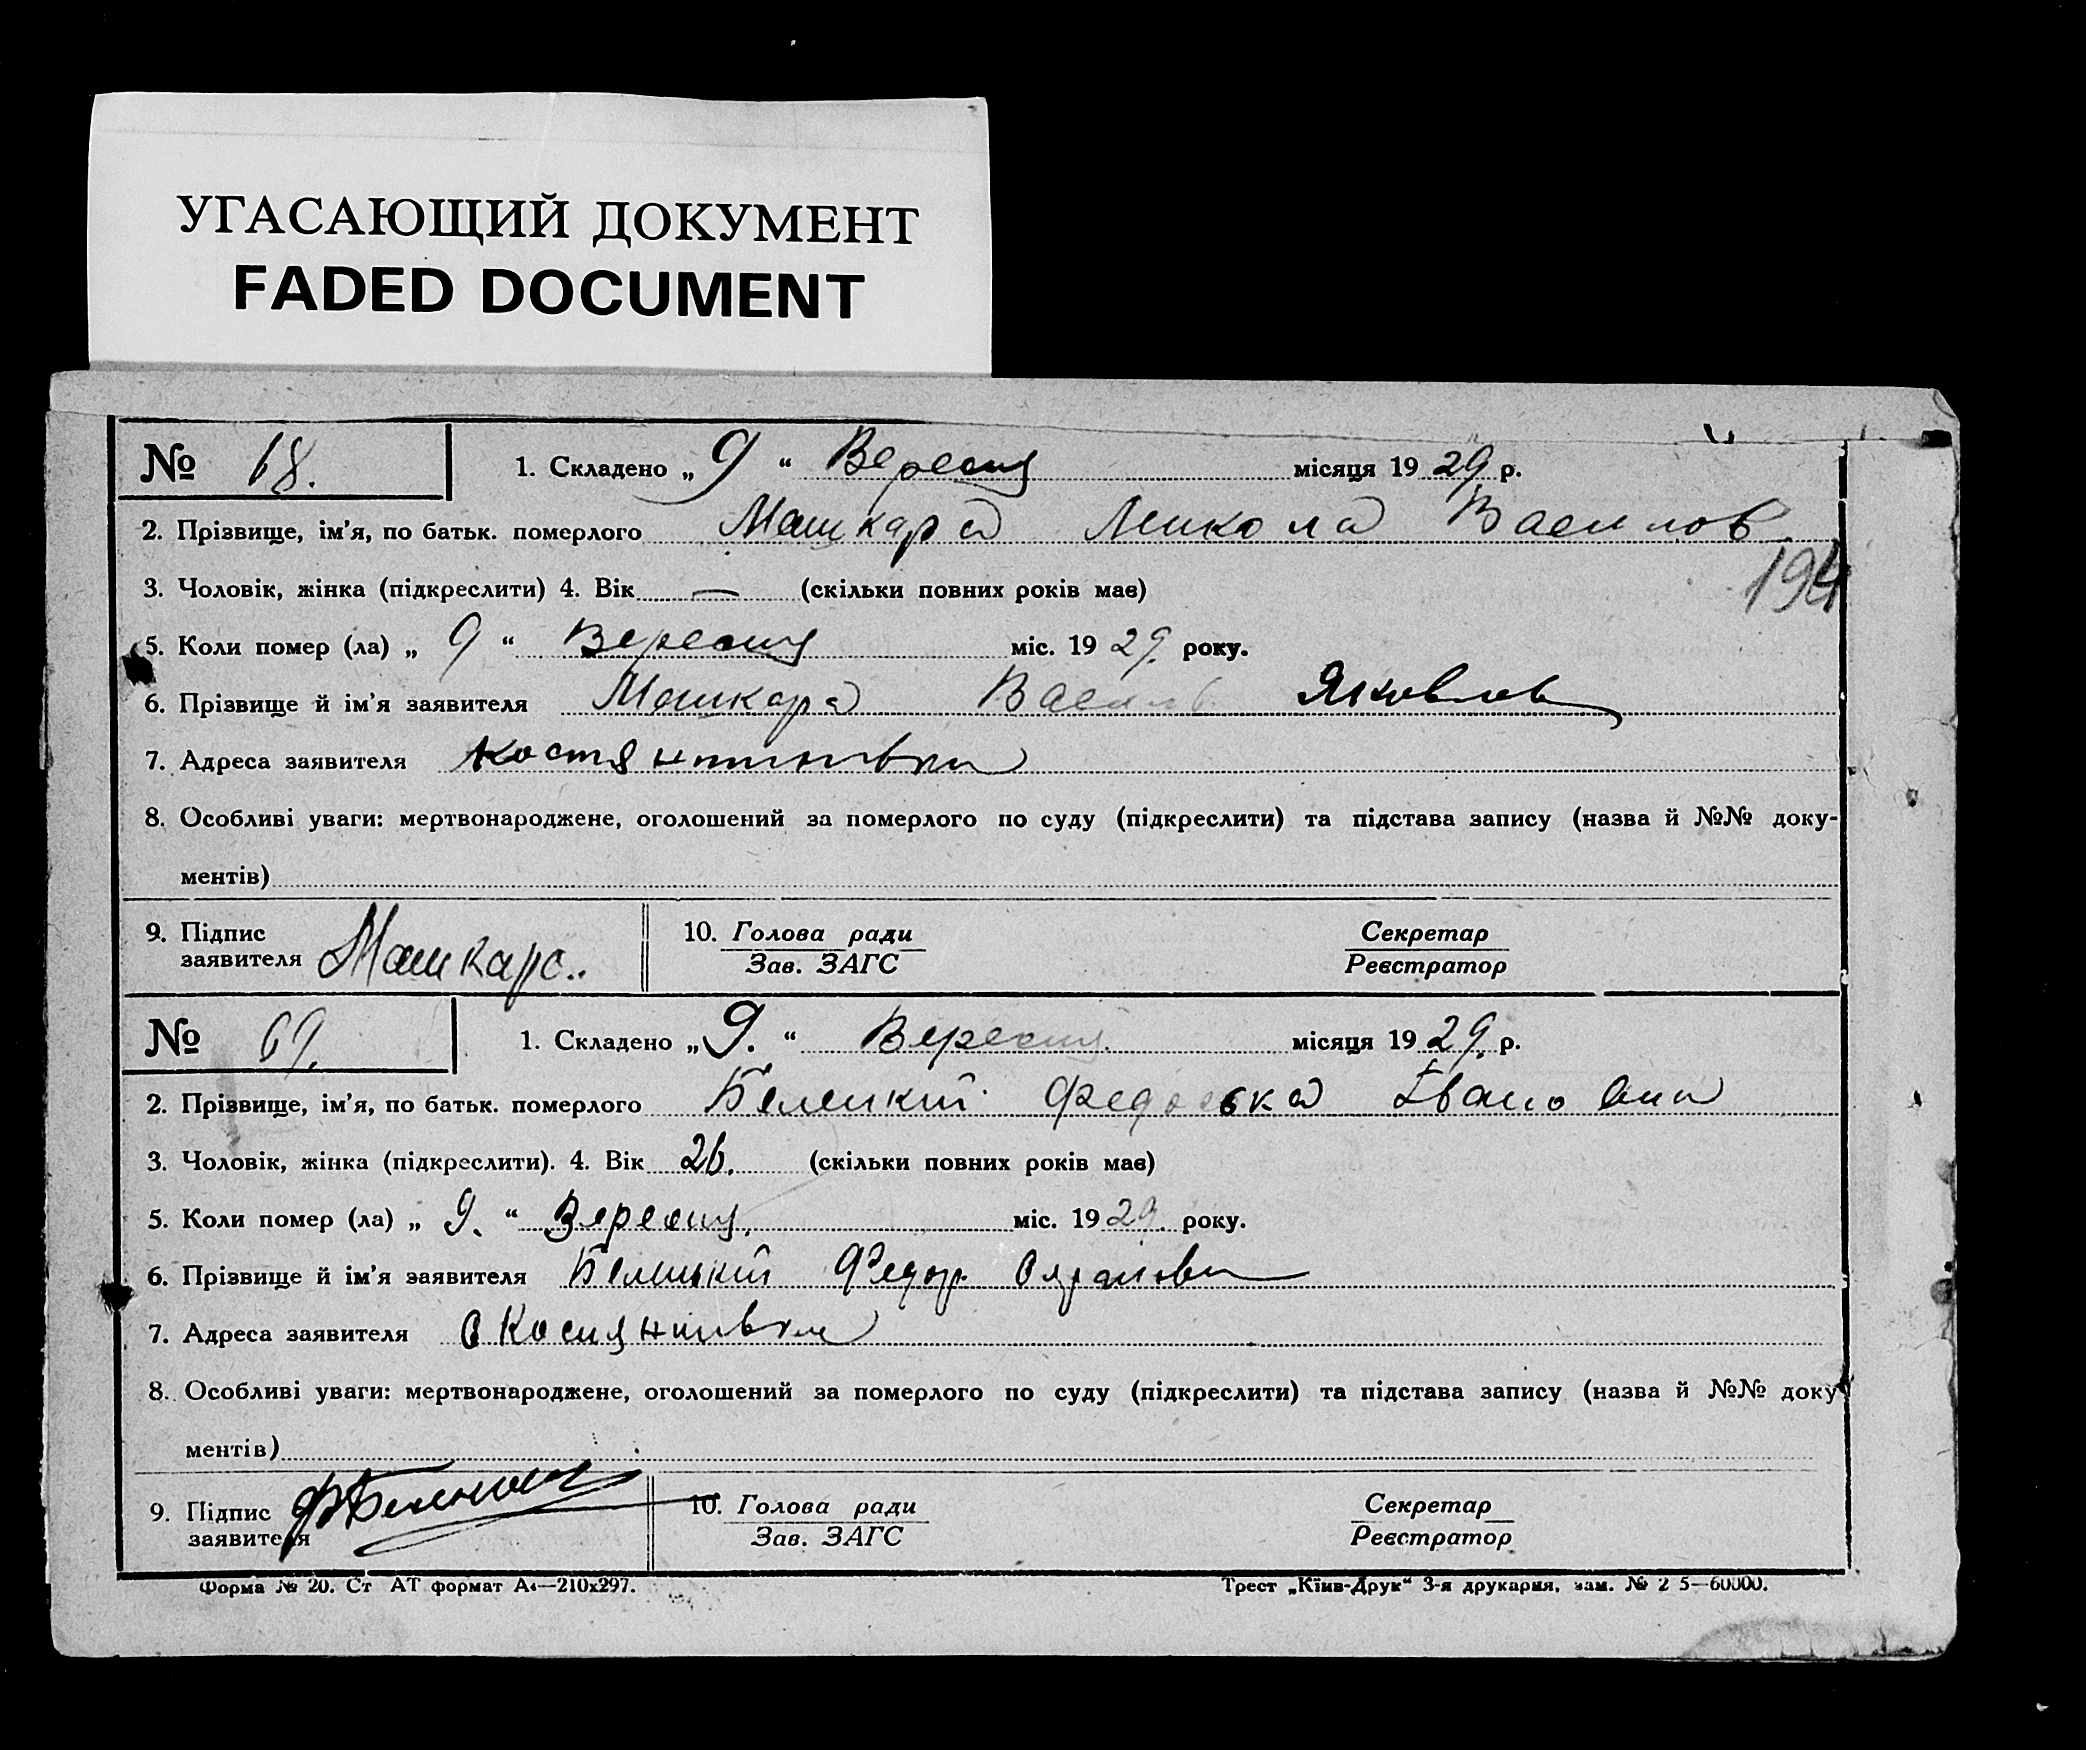 УГАСАЮЩИЙ ДОКУМЕНТ
FADED DOCUMENT
№ 68. 1. Складено „ 9 “ Вересня місяця 19 29 р.
2. Прізвище, ім’я, по батьк. померлого Машкара Микола Василов
194
3. Чоловік, жінка (підкреслити) 4. Вік — (скільки повних років має)
5. Коли помер (ла) „ 9 “ Вересня міс. 19 29. року.
6. Прізвище й ім’я заявителя Машкара Василь Яковлев
7. Адреса заявителя Костянтинівка
8. Особливі уваги: мертвонароджене, оголошений за померлого по суду (підкреслити) та підстава запису (назва й №№ доку-
ментів)
9. Підпис заявителя Машкара.. 10. Голова ради Зав. ЗАГС Секретар Реєстратор
№ 69. 1. Складено „ 9. “ Вересня. місяця 19 29. р.
2. Прізвище, ім’я, по батьк. померлого Белецкий Івановна
3. Чоловік, жінка (підкреслити). 4. Вік 26. (скільки повних років має)
5. Коли помер (ла) „ 9. “ Вересня. міс. 19 29. року.
6. Прізвище й ім’я заявителя Белецкий Федор
7. Адреса заявителя
8. Особливі уваги: мертвонароджене, оголошений за померлого по суду (підкреслити) та підстава запису (назва й №№ доку
ментів)
9. Підпис заявителя 10. Голова ради Зав. ЗАГС Секретар Реєстратор
Форма № 20. Ст АТ формат А4—210х297. Трест „Київ-Друк“ 3-я друкарня, зам. № 2 5—60000.